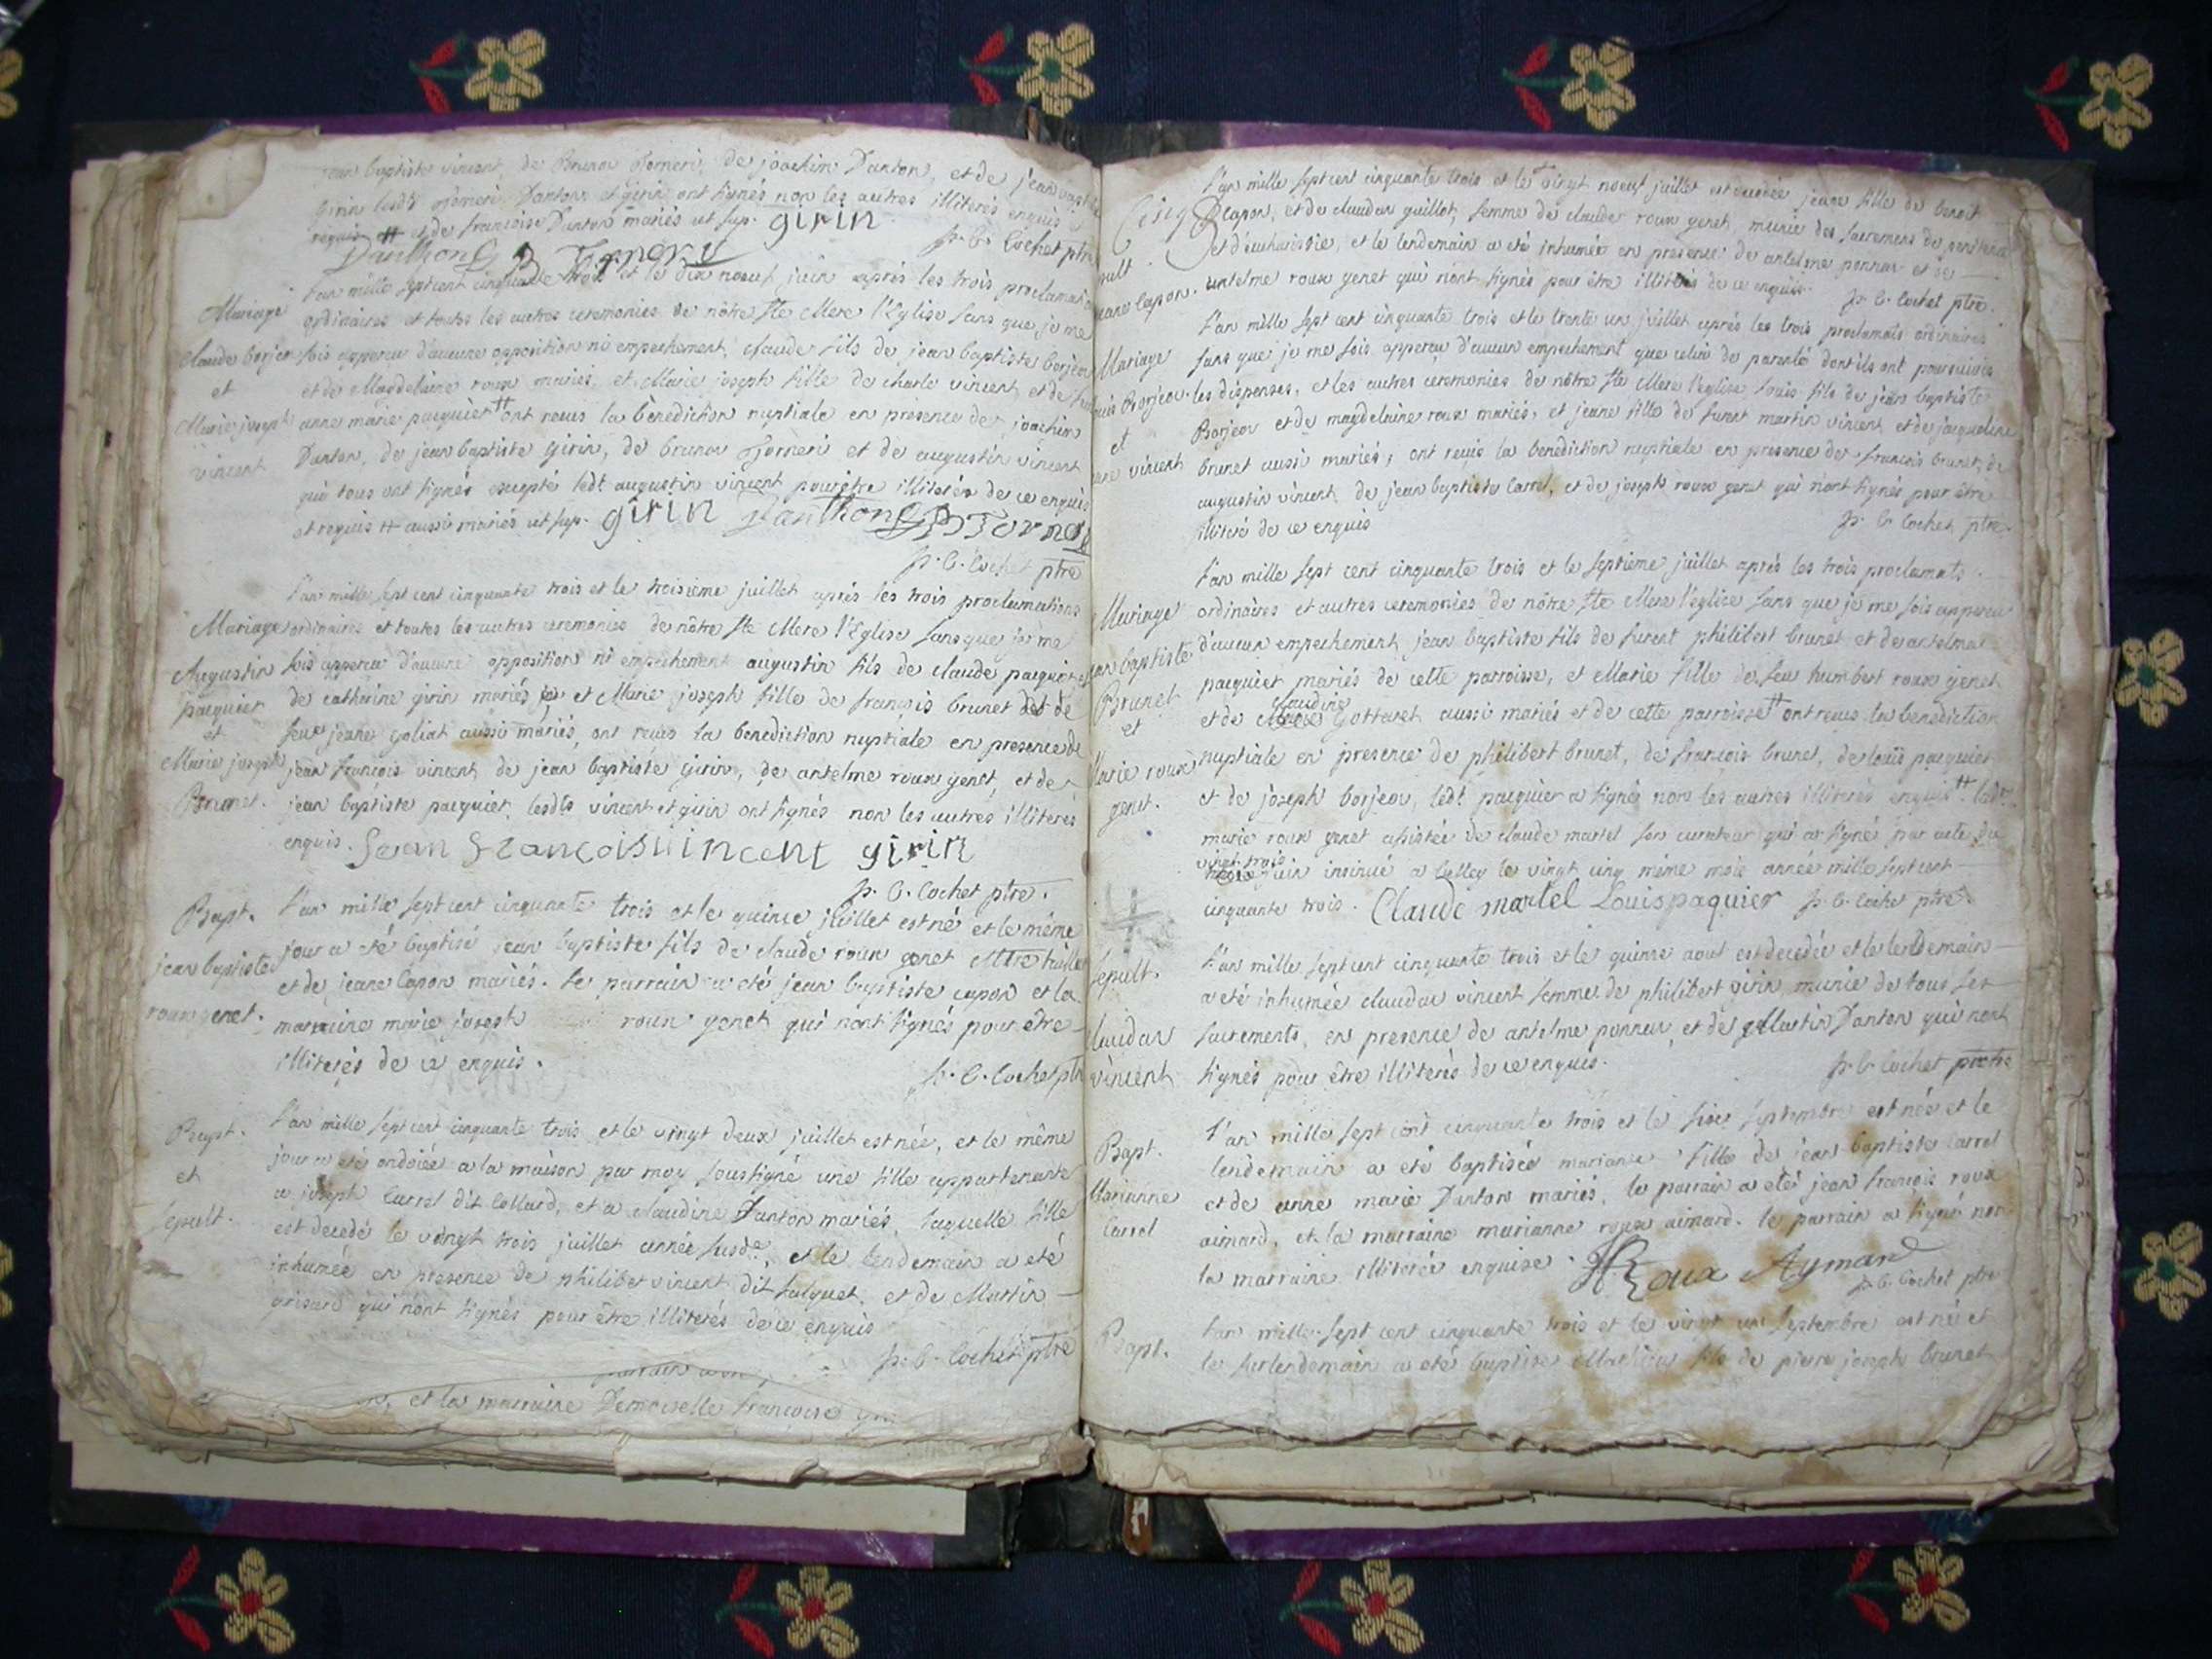 jean baptiste vincent, de Bruno Forneri, de joachim Danton, et de jean baptiste
girin lesdts forneri, Danton et girin ont signés non les autres illiterés enquis
requis et de francoise Danton mariés ut sup. girin
Danthon B Fornery p. C. Cochet ptre
L'an mille sept cent cinquante trois et le dix noeuf juin après les trois proclamations
Mariage
ordinaires et toutes les autres ceremonies de nôtre Ste Mere l'Eglise sans que je me
Claude borjon
sois apperçu d'aucune opposition ni empechement, claude fils de jean baptiste borjon
et
et de Magdelaine roux mariés, et Marie joseph fille de charle vincent et de
Marie joseph
anne marie paquier ++ ont reçus la bénédiction nuptiale en présence de joachim
vincent
Danton, de jean baptiste girin, de bruno Forneri et de augustin vincent
qui tous ont signés excepté ledt augustin vincent pour être illiterés de ce enquis
et requis ++ aussi mariés ut sup. girin Danthon B Forney
p. C. Cochet ptre
L'an mille sept cent cinquante trois et le troisieme juillet après les trois proclamations
Mariage
ordinaires et toutes les autres ceremonies de nôtre Ste Mere l'Eglise sans que je me
Augustin
sois apperçu d'aucune opposition ni empechement augustin fils de claude paquier et
paquier
de catherine girin mariés et Marie joseph fille de françois brunet et de
et
feue jeane goliat aussi mariés, ont reçus la benediction nuptiale en presence de
Marie joseph
jean françois vincent, de jean baptiste girin, de antelme roux genet, et de
Brunet.
jean baptiste paquier, lesdts vincent et girin ont signés non les autres illiterés
enquis. Jean Francois vincent girin
p. C. Cochet ptre.
Bapt.
L'an mille sept cent cinquante trois et le quinze juillet est né et le même
jean baptiste
jour a eté baptisé jean baptiste fils de claude roux genet
et de jeane Capon mariés. le parrain a eté jean baptiste capon et la
roux genet.
marraine marie joseph roux genet qui n'ont signés pour être
illiterés de ce enquis.
p. C. Cochet ptre
Bapt.
L'an mille sept cent cinquante trois et le vingt deux juillet est née, et le même
et
jour a eté ondoiée a la maison par moy soussigné une fille appartenante
sepult.
a joseph Carrel dit Collard, et a claudine Danton mariés, laquelle fille
est decedé le vingt trois juillet année susde, et le lendemain a eté
inhumée en presence de philibert vincent dit et de Martin
grisard qui n'ont signés pour être illiterés de ce enquis
p. C. Cochet ptre
et la marraine Demoiselle francoise
L'an mille sept cent cinquante trois et le vingt noeuf juillet est decedée jeane fille de benoit
Capon, et de claudar guillot, femme de claude roux genet, munie des sacremens de penitence
et d'eucharistie, et le lendemain a eté inhumée en presence de antelme ponnar et de
sepult.
jeane Capon.
antelme roux genet qui n'ont signés pour être illiterés de ce enquis.
p. C. Cochet ptre.
L'an mille sept cent cinquante trois et le trente un juillet après les trois proclamats ordinaires
Mariage
sans que je me sois apperçu d'aucun empechement que celui de parenté dont ils ont poursuivis
Louis Borjon.
les dispenses, et les autres ceremonies de nôtre Ste Mere l'eglise Louis fils de jean baptiste
et
Borjon et de magdelaine roux mariés, et jeane fille de furent martin vincent et de jaqueline
jeane vincent
brunet aussi mariés, ont reçus la benediction nuptiale en presence de francois brunet, de
augustin vincent, de jean baptiste Carrel, et de joseph roux genet qui n'ont signés pour être
illiteré de ce enquis
p. C. Cochet ptre.
L'an mille sept cent cinquante trois et le septieme juillet après les trois proclamats
Mariage
ordinaires et autres ceremonies de nôtre Ste Mere l'eglise sans que je me sois apperçu
jean baptiste
d'aucun empechement, jean baptiste fils de furent philibert brunet et de antelma
Brunet
paquier mariés de cette parroisse, et Marie fille de feu humbert roux genet
et
et de claudine Gottaret aussi mariés et de cette parroisse ++ ont reçus la benediction
Marie roux
nuptiale en presence de philibert brunet, de francois brunet, de louis paquier
genet.
et de joseph borjon, ledt paquier a signé non les autres illiterés enquis ++ ladte
marie roux genet assistée de claude martel son curateur qui a signé par acte du
vingt trois juin insinué a belley le vingt cinq même mois année mille sept cent
cinquante trois. Claude martel Louis paquier p. C. Cochet ptre.
sepult.
L'an mille sept cent cinquante trois et le quinze aout est decedée et le lendemain
a eté inhumée claudar vincent femme de philibert girin, munie de tous ses
Claudar
sacrements, en presence de antelme ponnar, et de Martin Danton qui n'ont
vincent
signés pour être illiterés de ce enquis.
p. C. Cochet ptre
Bapt.
L'an mille sept cent cinquante trois et le six septembre est née et le
Marianne
lendemain a eté baptisée marianne fille de jean baptiste Carrel
Carrel
et de anne marie Danton mariés, le parrain a eté jean francois roux
aimard, et la marraine marianne roux aimard. le parrain a signé non
la marraine illiterée enquise. Roux Aymard
p. C. Cochet ptre
Bapt.
L'an mille sept cent cinquante trois et le vingt un septembre est né et
le surlendemain a eté baptisé Mathieu fils de pierre joseph brunet